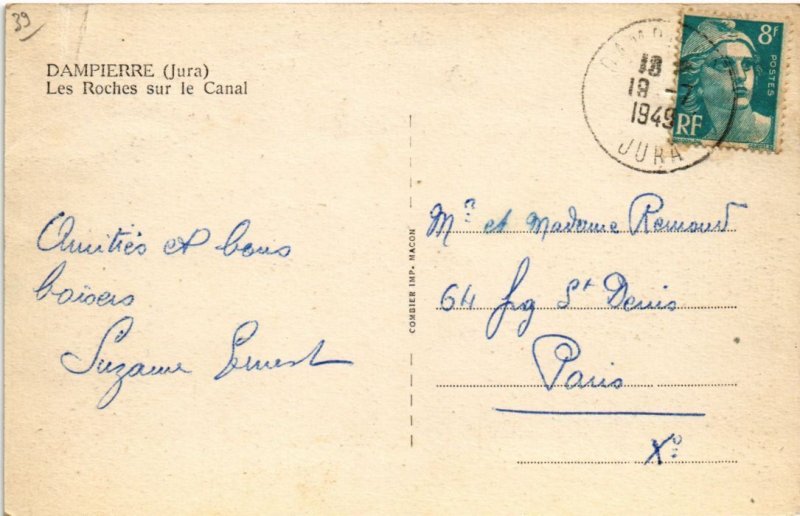 39
DAMPIERRE (Jura)
Les Roches sur le Canal
8f
POSTES
RF
18
18 -
1949
JURA
Amitiés et bons
baisers
Suzanne Ernest
COMBIER IMP. MACON
Mr et Madame Remond
64 fbg St Denis
Paris
Xe